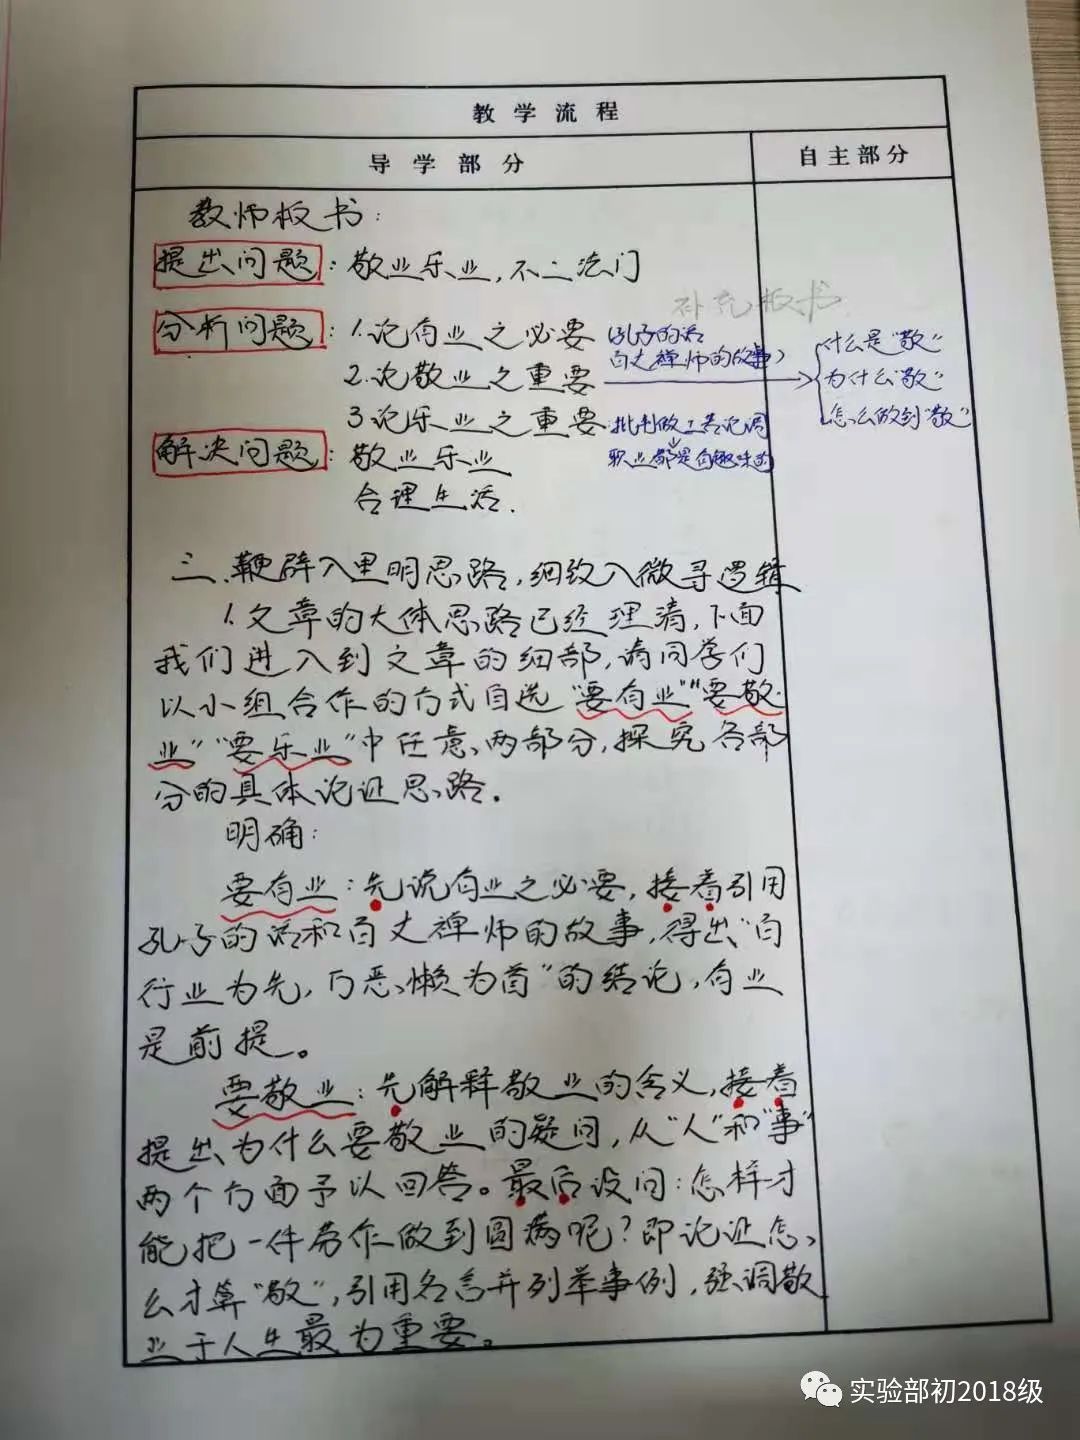 教学流程
导学部分
自主部分
教师板书：
提出问题：敬业乐业，不二法门
补充板书
分析问题：1.论有业之必要
（孔子的话
百丈禅师的故事）
2.论敬业之重要
什么是“敬”
为什么“敬”
怎么做到“敬”
3.论乐业之重要
批判做工苦论调
职业都是有趣味的
解决问题：敬业乐业
合理生活.
三、鞭辟入里明思路，细致入微寻逻辑
1.文章的大体思路已经理清，下面
我们进入到文章的细部，请同学们
以小组合作的方式自选“要有业”“要敬
业”“要乐业”中任意两部分，探究各部
分的具体论证思路.
明确：
要有业：先说有业之必要，接着引用
孔子的话和百丈禅师的故事，得出“百
行业为先，万恶懒为首”的结论，有业
是前提。
要敬业：先解释敬业的含义，接着
提出为什么要敬业的疑问，从“人”和“事”
两个方面予以回答。最后设问：怎样才
能把一件劳作做到圆满呢？即论证怎
么才算“敬”，引用名言并列举事例，强调敬
业于人生最为重要。
实验部初2018级